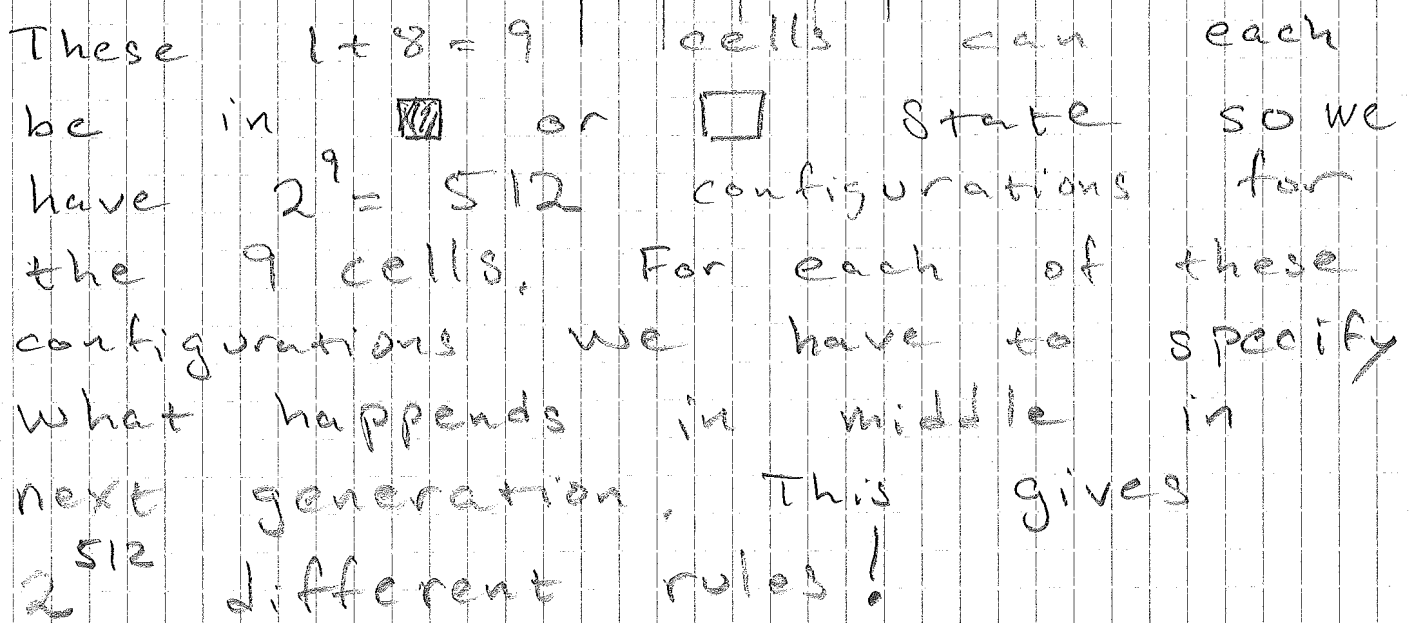 These 1 + 8 = 9 cells can each
be in ▨ or □ state so we
have 2⁹ = 512 configurations for
the 9 cells. For each of these
configurations we have to specify
what happends in middle in
next generation. This gives
2⁵¹² different rules!